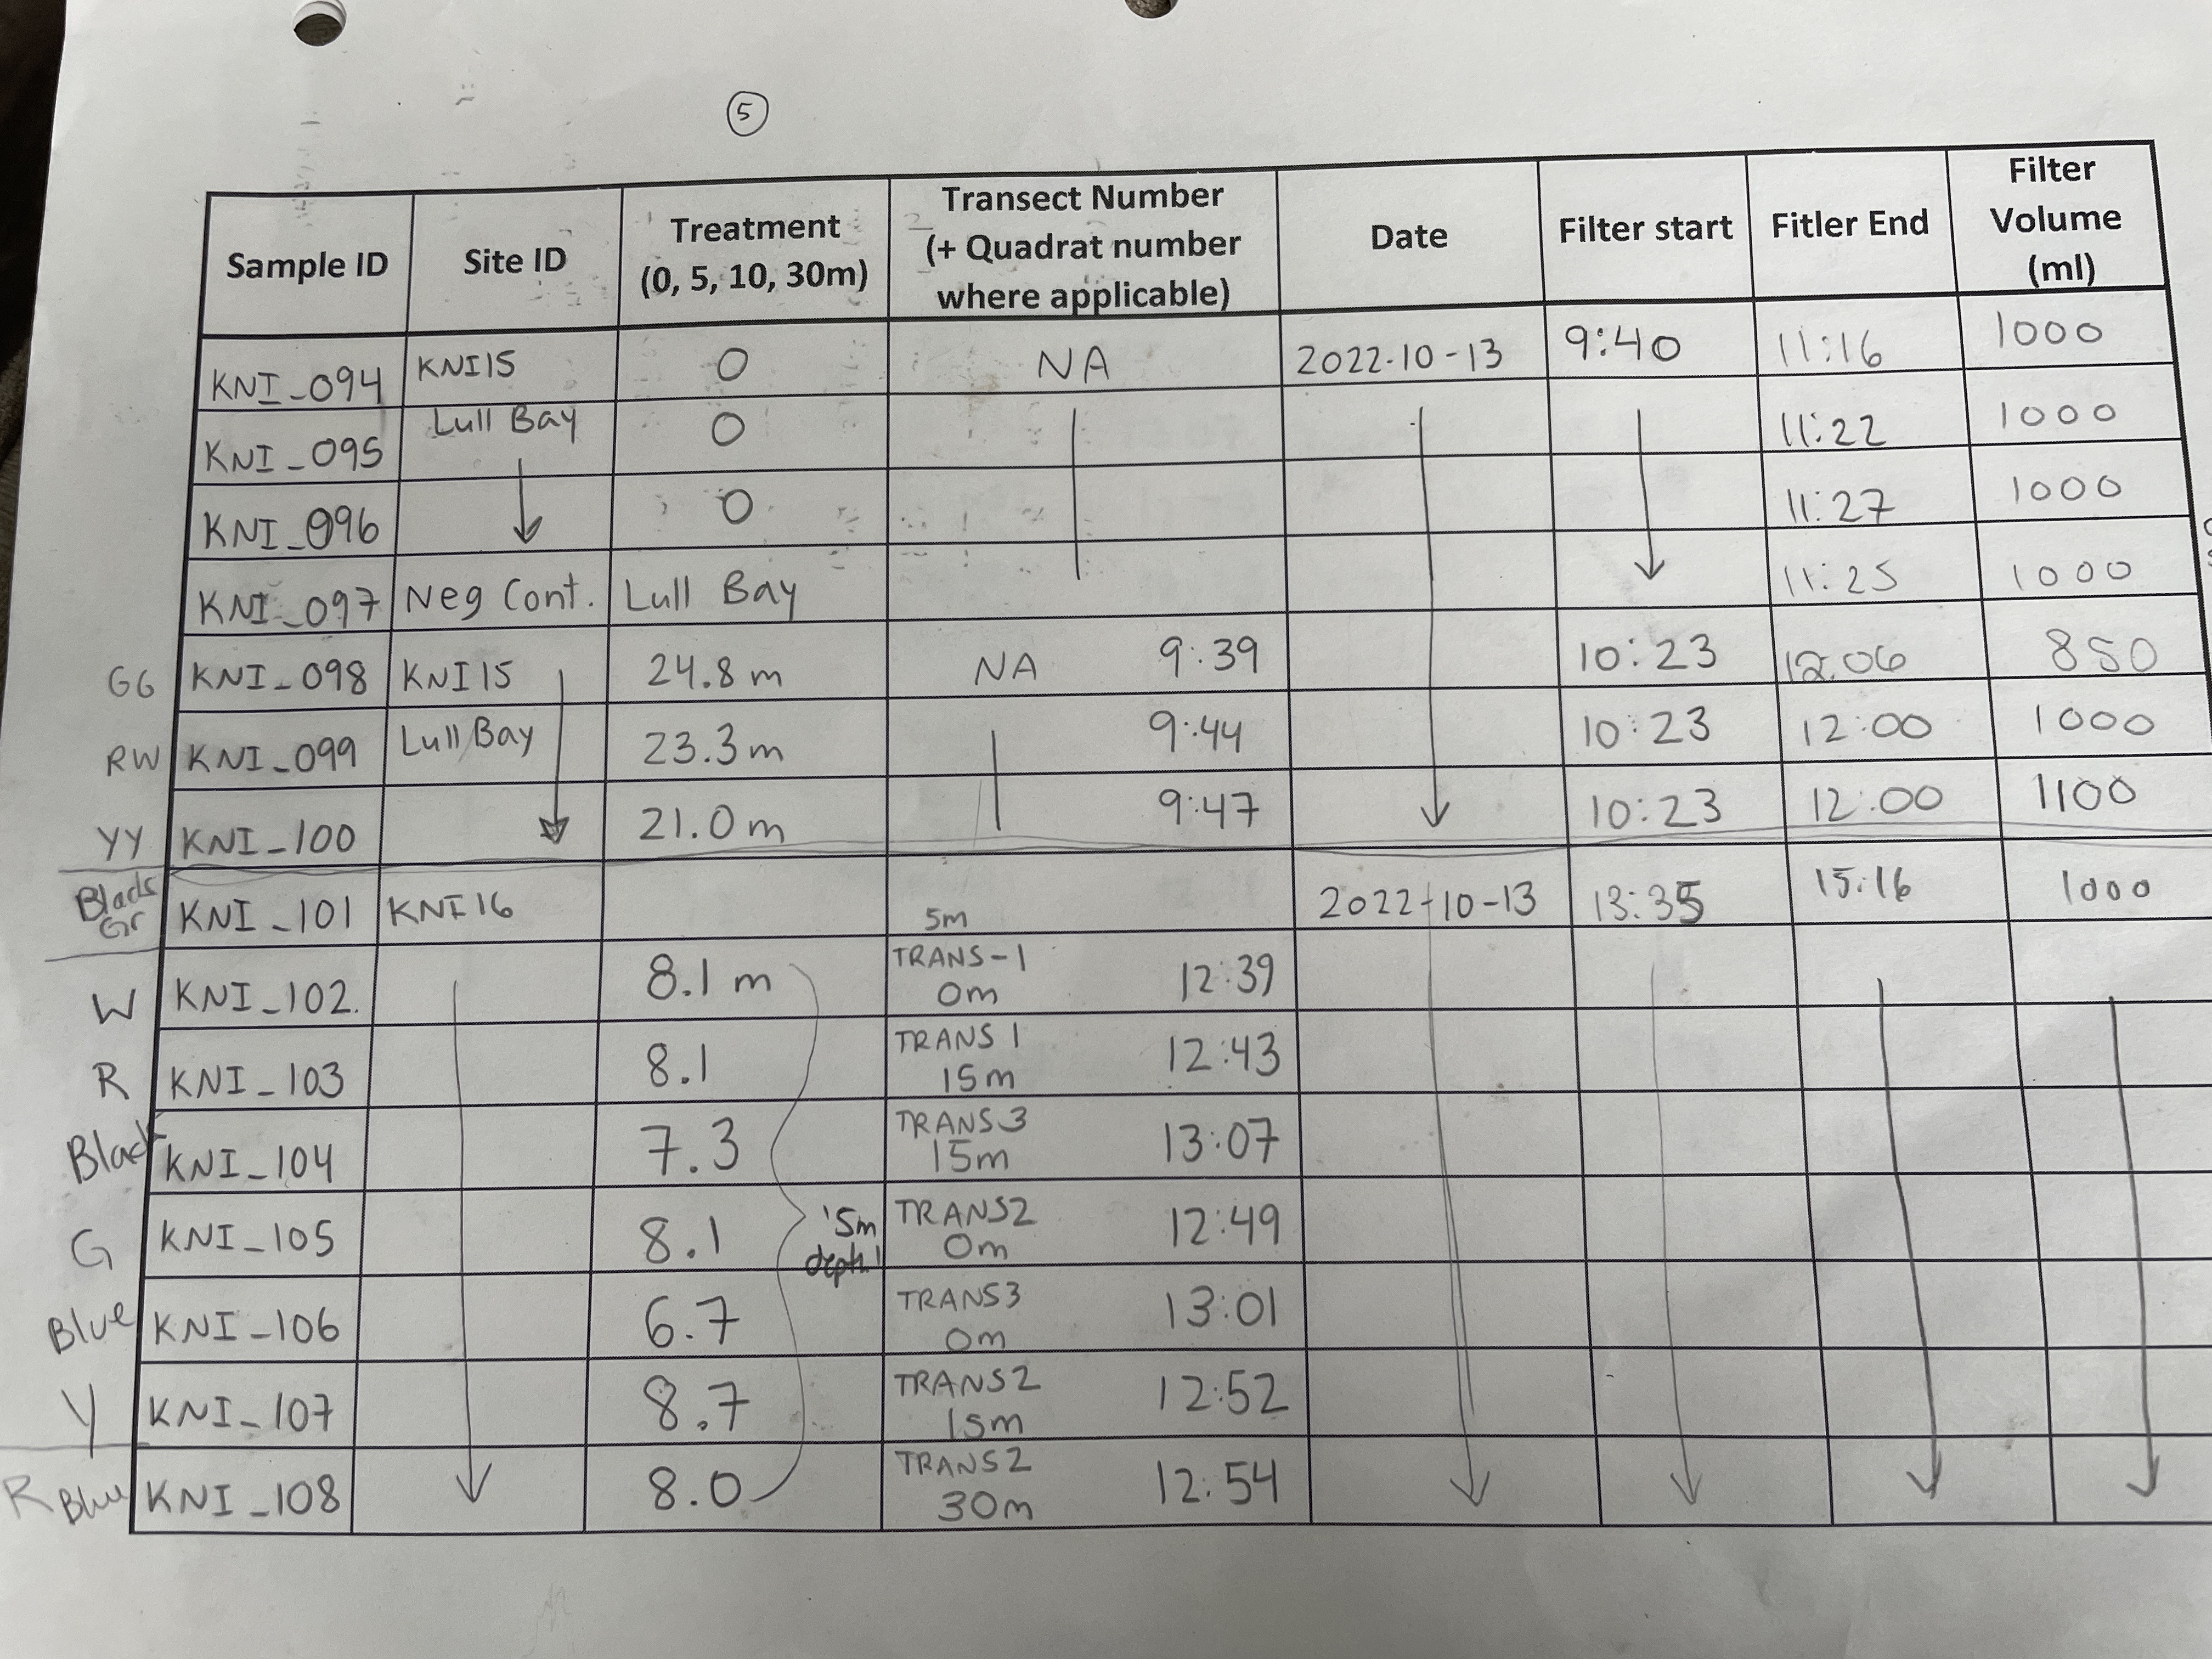 5
Sample ID Site ID Treatment (0, 5, 10, 30m) Transect Number (+ Quadrat number where applicable) Date Filter start Fitler End Filter Volume (ml)
KNI_094 KNI15 0 NA 2022-10-13 9:40 11:16 1000
KNI_095 Lull Bay 0 11:22 1000
KNI_096 ↓ 0 11:27 1000
KNI_097 Neg Cont. Lull Bay ↓ 11:25 1000
GG KNI_098 KNI15 24.8 m NA 9:39 10:23 12:06 850
RW KNI_099 Lull Bay 23.3 m 9:44 10:23 12:00 1000
YY KNI_100 ↓ 21.0 m 9:47 ↓ 10:23 12:00 1100
Black Gr KNI_101 KNI16 5m 2022-10-13 13:35 15:16 1000
W KNI_102 8.1 m TRANS-1 0m 12:39
R KNI_103 8.1 TRANS1 15m 12:43
Black KNI_104 7.3 TRANS3 15m 13:07
G KNI_105 8.1 TRANS2 0m 12:49
'5m depth'
Blue KNI_106 6.7 TRANS3 0m 13:01
Y KNI_107 8.7 TRANS2 15m 12:52
R Blue KNI_108 ↓ 8.0 TRANS2 30m 12:54 ↓ ↓ ↓ ↓